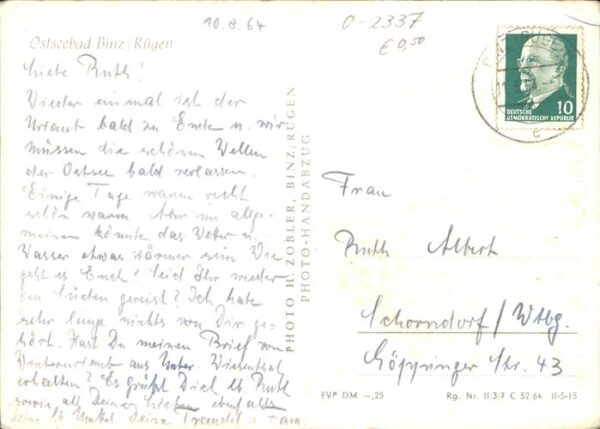 10.8.64
0-2337
€ 0,50
Ostseebad Binz/Rügen
Liebe Ruth!
Wieder einmal ist der
Urlaub bald zu Ende u. wir
müssen die schönen Wellen
der Ostsee bald verlassen.
Einige Tage waren recht
schön warm Aber im allge-
meinen könnte das Wetter u.
Wasser etwas wärmer sein Wie
geht es Euch? Seid Ihr wieder
im Süden gereist? Ich habe
sehr lange nichts von Dir ge-
hört. Hast Du meinen Brief vom
Winterurlaub aus Unter. Wiesenthal
erhalten? Es grüßt Dich lb Ruth
sowie all Deine Lieben ebenfalls
Deine
PHOTO H. ZOBLER, BINZ/RÜGEN
PHOTO-HANDABZUG
10
DEUTSCHE
DEMOKRATISCHE REPUBLIK
c
Frau
Ruth Albert
Schorndorf/Wtbg.
Göppinger Str. 43
EVP DM —,25
Rg. Nr. II/3/7 C 52 64 II-5-15